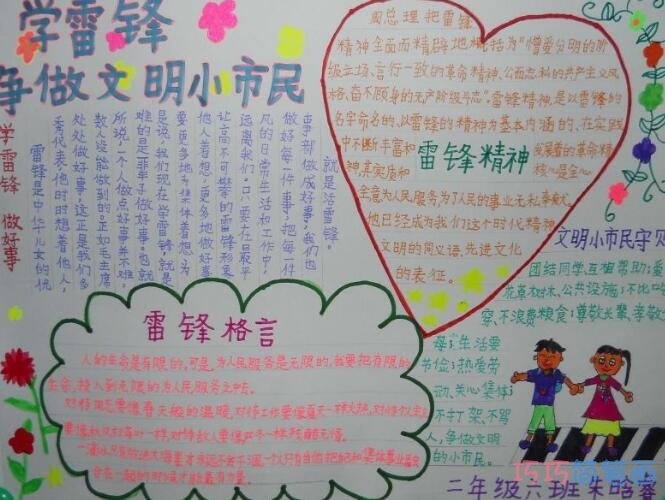 学雷锋
争做文明小市民
学雷锋 做好事
雷锋是中华儿女的优
秀代表,他时时想着他人,
处处做好事,这正是我们多
数人没能做到的。正如毛主席
所说,一个人做点好事并不难,
难的是一辈子做好事。也就
是说,我们现在学雷锋,就是
要更多地为集体着想、为
他人着想,更多地做好事
让高不可攀的雷锋形象
远离我们,只要在日最平
凡的日常生活和工作中,
做好每一件事,把每一件
事都做成好事,我们也
就是活雷锋。
周总理把雷锋
精神全面而精辟地概括为“憎爱分明的阶
级立场、言行一致的革命精神、公而忘私的共产主义风
格、奋不顾身的无产阶级斗志”。雷锋精神,是以雷锋的
名字命名的、以雷锋的精神为基本内涵的、在实践
中不断丰富和
发展着的革命精
神,其实质和
核心是全心
雷锋精神
全意为人民服务,为了人民的事业无私奉献。尤
他已经成为我们这个时代精神
文明的同义语、先进文化
的表征。
雷锋格言
人的生命是有限的,可是,为人民服务是无限的,我要把有限的
生命,投入到无限的为人民服务之中去。
对待同志要像春天般的温暖,对待工作要像夏天一样火热,对待个人主
要像秋风扫落叶一样,对待敌人要像严冬一样残酷无情。
一滴水只有放进大海里才永远不会干涸,一个人只有当他把自己和集体事业融
合在一起的时候才能最有力量。
文明小市民守
团结同学、互相帮助;爱
花草树木、公共设施;不比吃
穿、不浪费粮食;尊敬长辈、孝敬
每;生活要
节俭;热爱劳
动、关心集体;
不打架、不骂
人,争做文明
的小市民。
二年级六班朱晗
巧巧